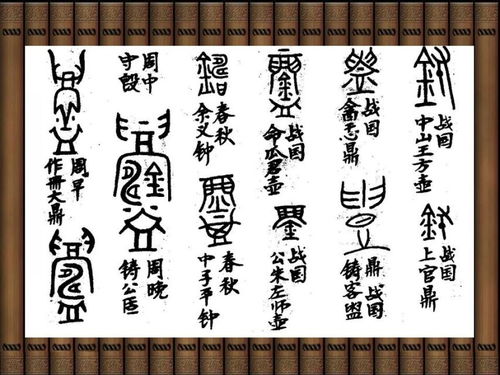 周早
作册大鼎
周中
守𣪘
周晚
铸公
春秋
余义钟
春秋
中子平钟
战国
命瓜君壶
战国
公朱左师壶
战国
忎鼎
战国
鼎
铸客盟
战国
中山王方壶
战国
上官鼎